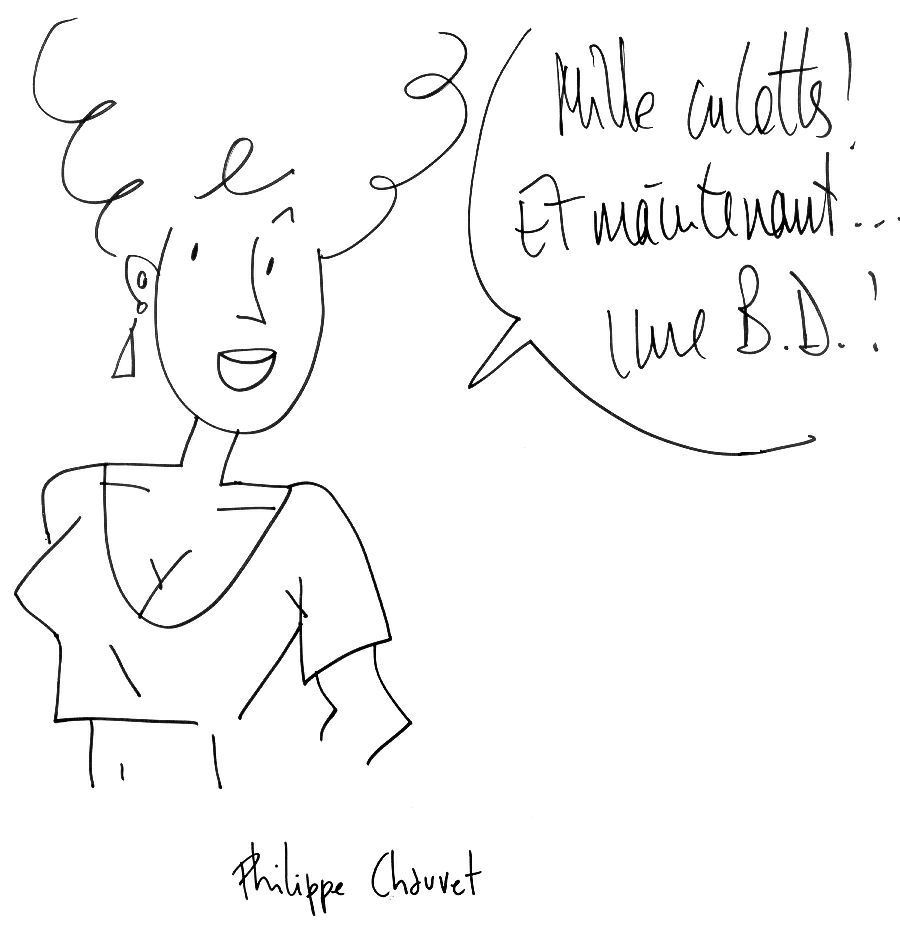 Mille culottes!
Et maintenant...
Une B.D.!
Philippe Chauvet